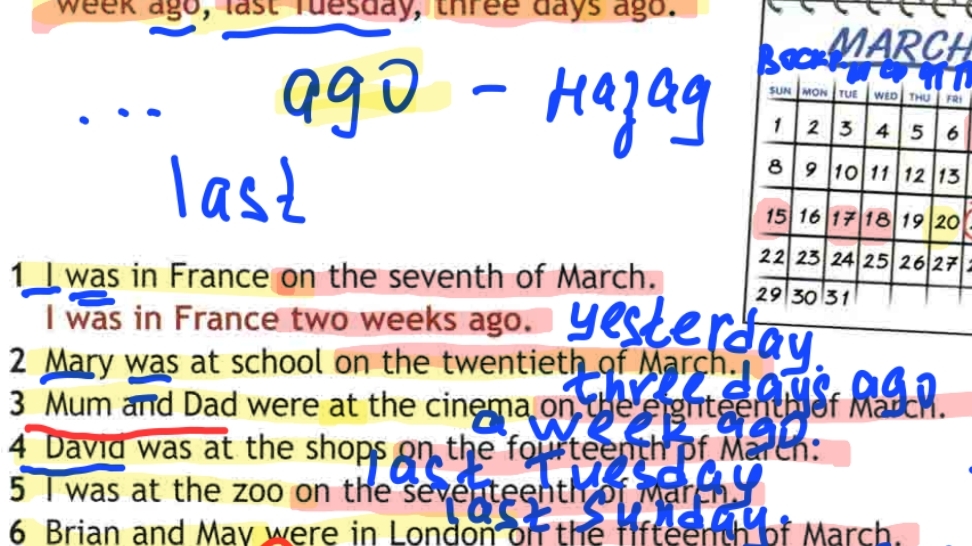 week ago, last Tuesday, three days ago.
... ago - назад
last
MARCH
SUN MON TUE WED THU FRI
1 2 3 4 5 6
8 9 10 11 12 13
15 16 17 18 19 20
22 23 24 25 26 27
29 30 31
1 I was in France on the seventh of March.
I was in France two weeks ago.
yesterday.
2 Mary was at school on the twentieth of March.
three days ago
3 Mum and Dad were at the cinema on the eighteenth of March.
a week ago.
4 David was at the shops on the fourteenth of March.
last Tuesday
5 I was at the zoo on the seventeenth of March.
last Sunday.
6 Brian and May were in London on the fifteenth of March.